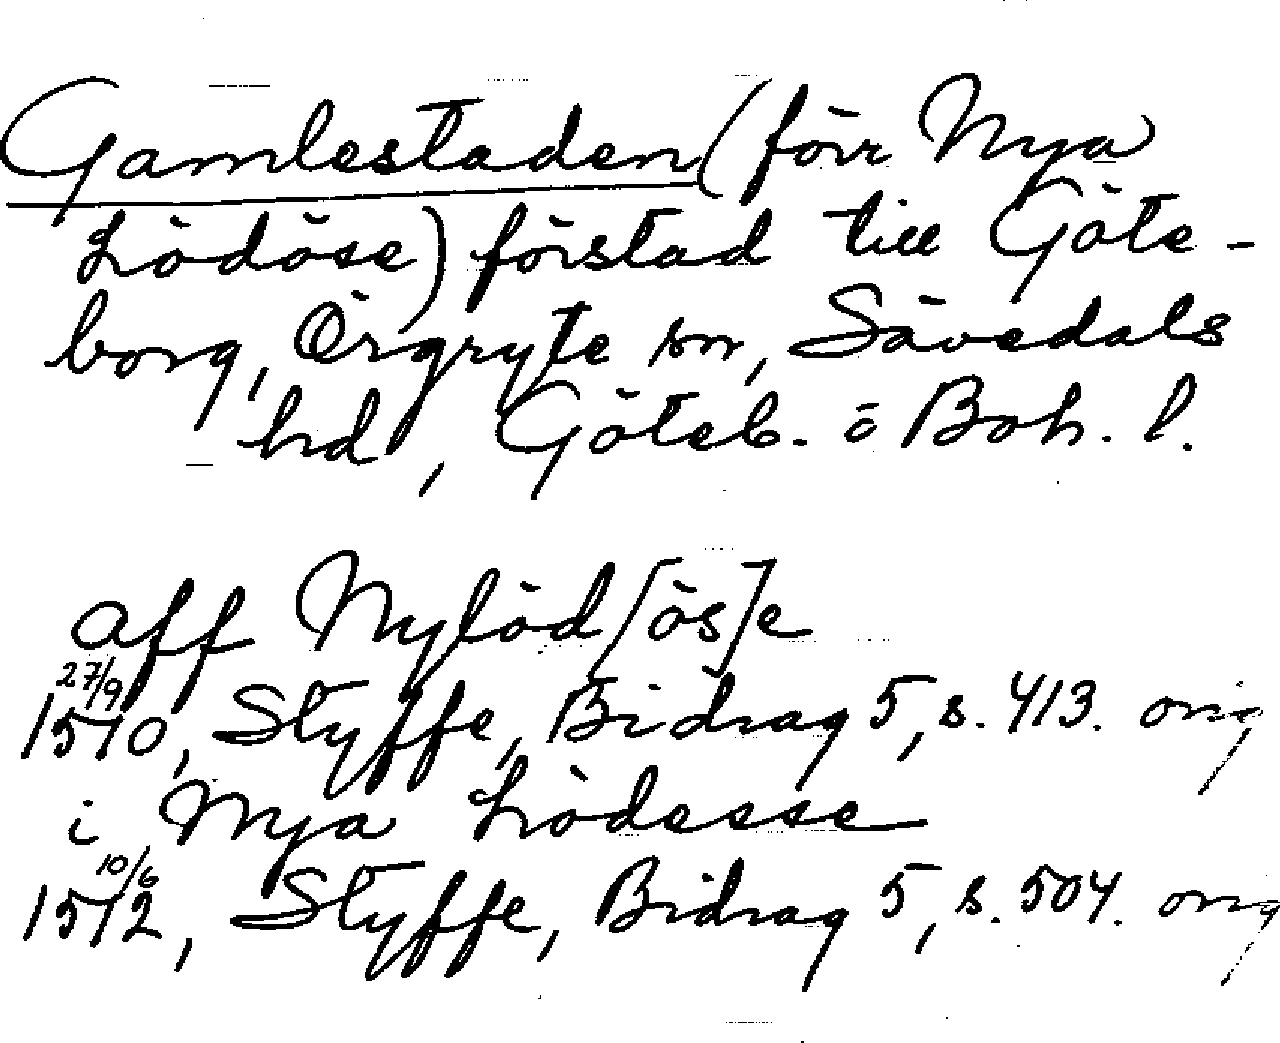 Gamlestaden (förr Nya
Lödöse) förstad till Göte-
borg, Örgryte sn, Sävedals
hd, Göteb. o Boh. l.
aff Nylöd[ös]e
27/9
1510, Styffe, Bidrag 5, s. 413. orig
i Nya Lödesse
10/6
1512, Styffe, Bidrag 5, s. 504. orig